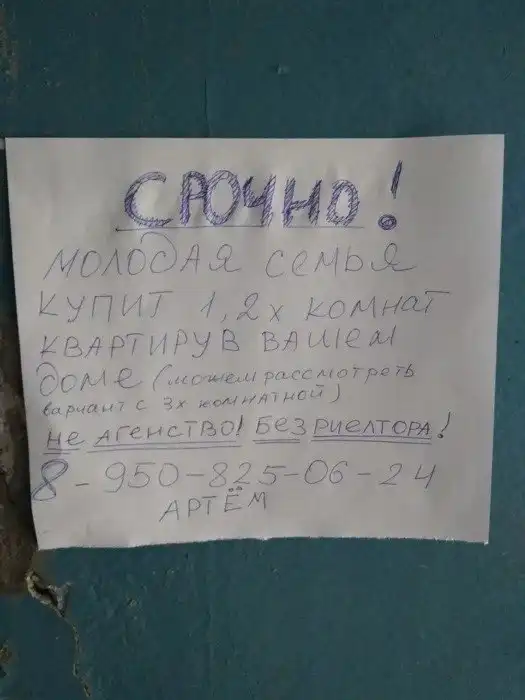 СРОЧНО!
МОЛОДАЯ СЕМЬЯ
КУПИТ 1, 2х КОМНАТ
КВАРТИРУ В ВАШЕМ
ДОМЕ (можем рассмотреть
вариант с 3х комнатной)
НЕ АГЕНСТВО! БЕЗ РИЕЛТОРА!
8-950-825-06-24
АРТЁМ